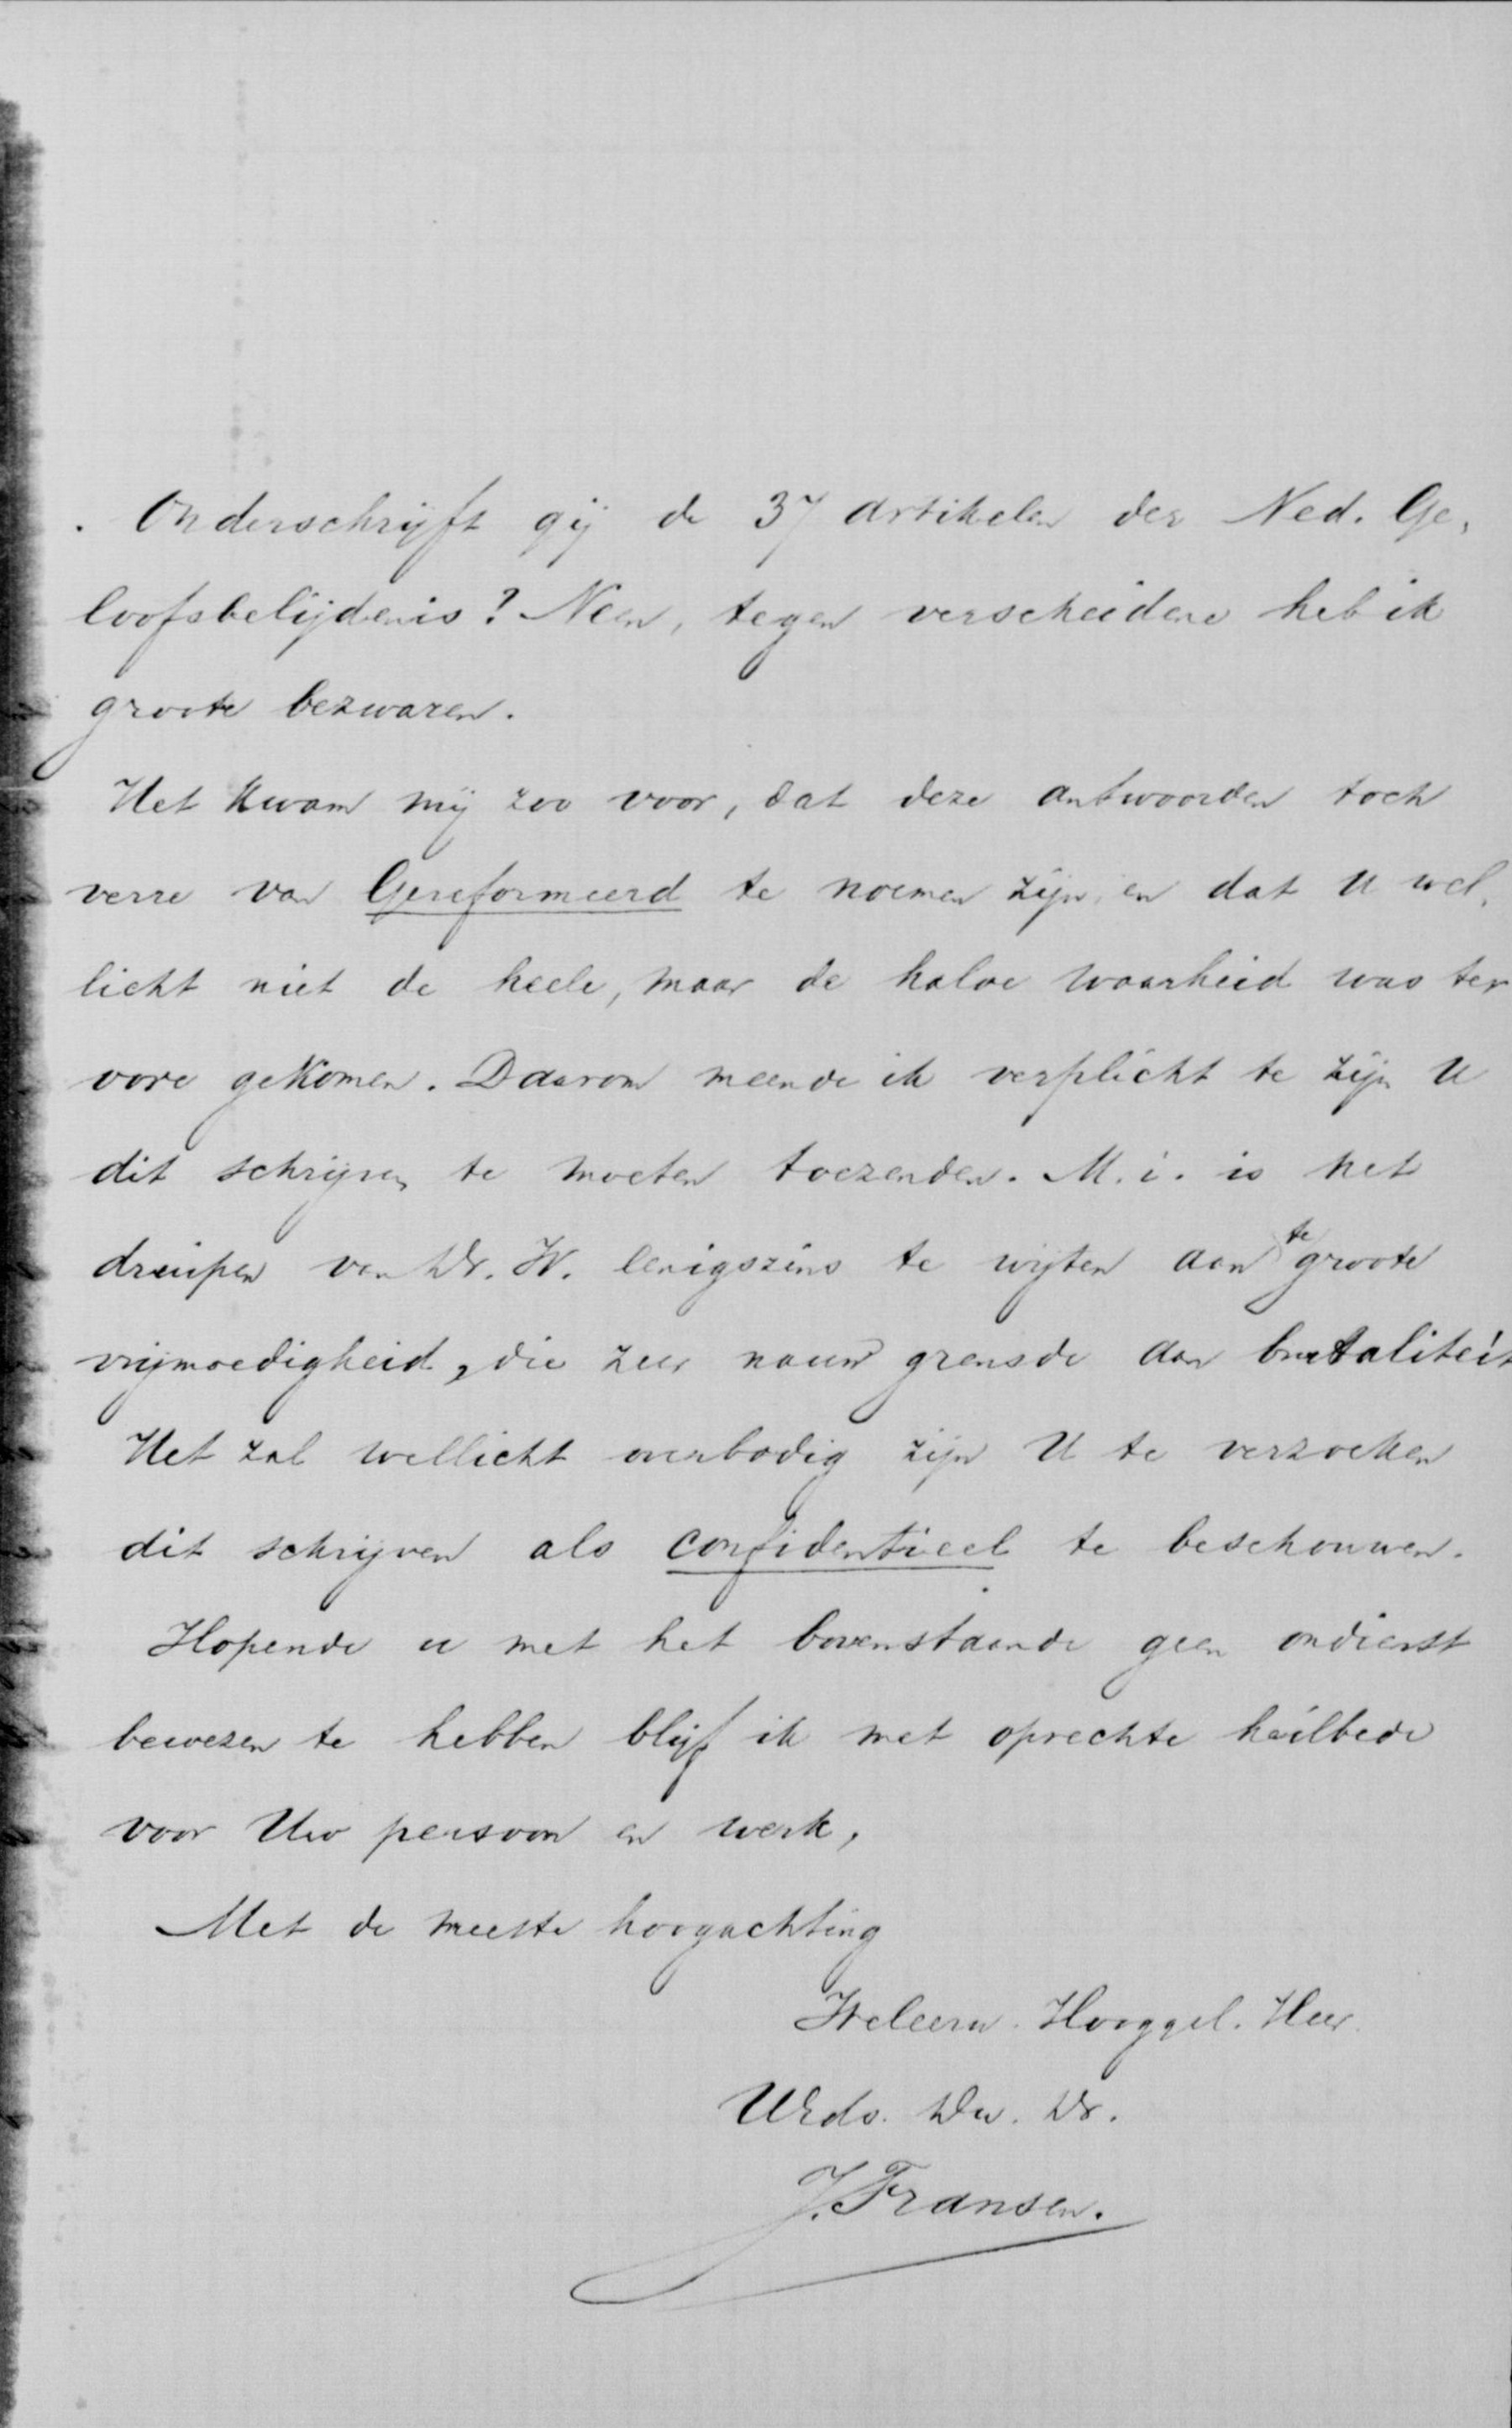 . Onderschrijft gij de 37 artikelen der Ned. Ge,
loofsbelijdenis? Neen, tegen verscheidene heb ik
groote bezwaren.
Het kwam mij zoo voor, dat deze antwoorden toch
verre van Gereformeerd te noemen zijn, en dat U wel,
licht niet de heele, maar de halve waarheid was ter
oore gekomen. Daarom meende ik verplicht te zijn U
dit schrijven te moeten toezenden. M.i. is het
druipen van Dr. W. eenigszins te wijten aan te groote
vrijmoedigheid, die zeer nauw grensde aan brutaliteit
Het zal wellicht overbodig zijn U te verzoeken
dit schrijven als confidentieel te beschouwen.
Hopende u met het bovenstaande geen ondienst
bewezen te hebben blijf ik met oprechte heilbede
voor Uw persoon en werk,
Met de meeste hoogachting
Weleerw. Hooggel. Heer
UEds. Dw. Dr.
J. Fransen.